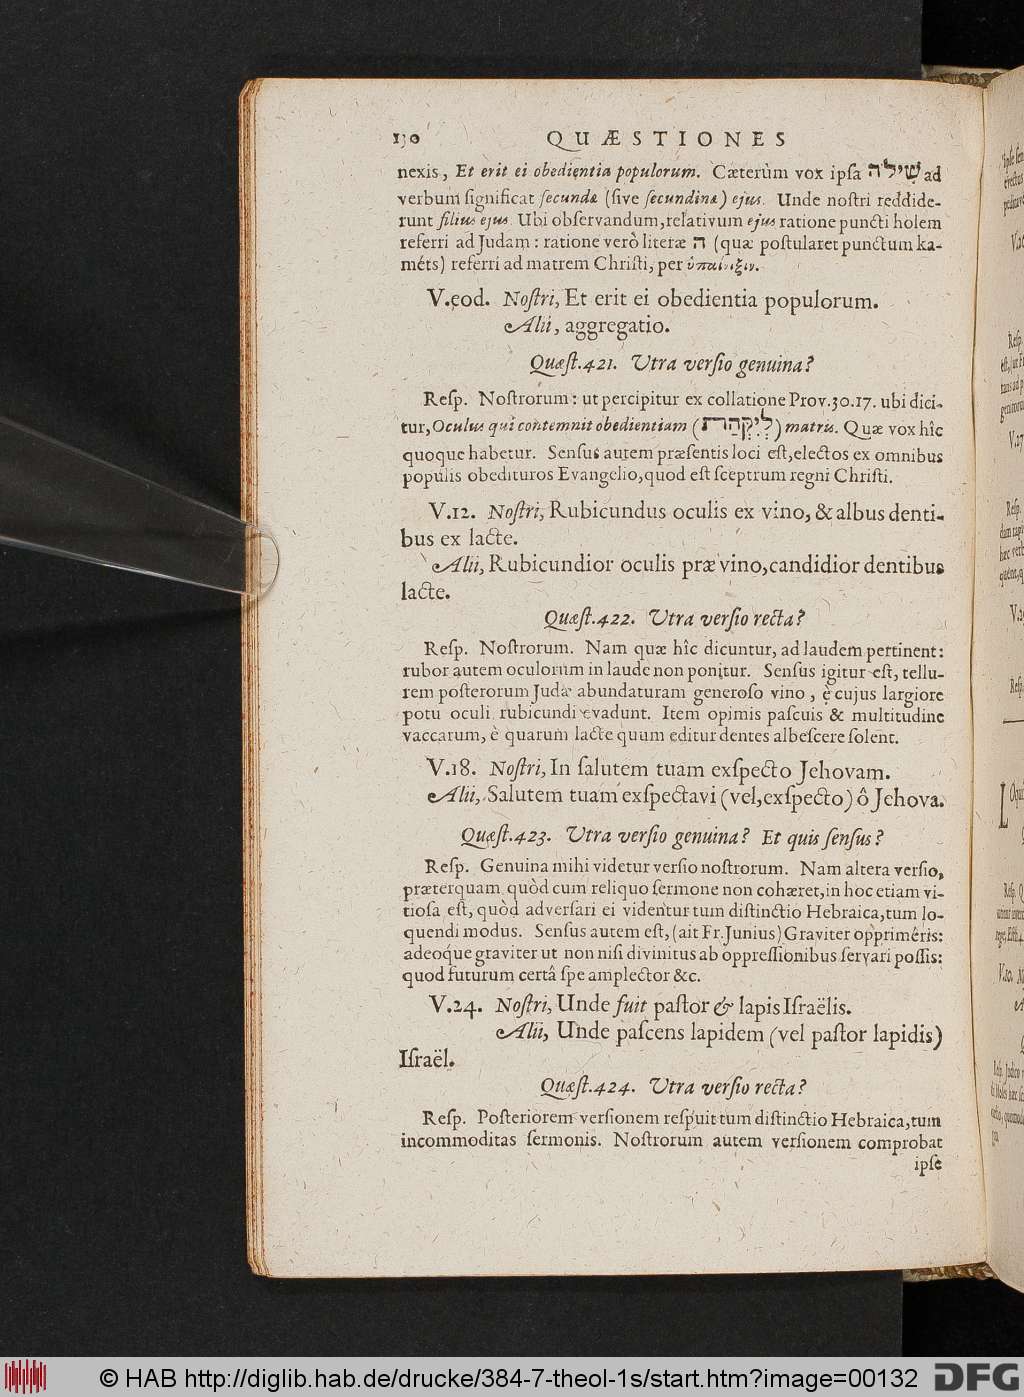 130 QUÆSTIONES
nexis, Et erit ei obedientia populorum. Cæterùm vox ipsa שִׁילה ad
verbum ſignificat ſecundæ (ſive ſecundinæ) ejus. Unde noſtri reddide-
runt filius ejus. Ubi obſervandum, relativum ejus ratione puncti holem
referri ad Judam: ratione verò literæ ה (quæ poſtularet punctum ka-
méts) referri ad matrem Chriſti, per
V. eod. Noſtri, Et erit ei obedientia populorum.
Alii, aggregatio.
Quæſt. 421. Utra verſio genuina?
Reſp. Noſtrorum: ut percipitur ex collatione Prov. 30. 17. ubi dici-
tur, Oculus qui contemnit obedientiam (לִיקְּהַת) matris. Quæ vox hîc
quoque habetur. Senſus autem præſentis loci eſt, electos ex omnibus
populis obedituros Evangelio, quod eſt ſceptrum regni Chriſti.
V. 12. Noſtri, Rubicundus oculis ex vino, & albus denti-
bus ex lacte.
Alii, Rubicundior oculis præ vino, candidior dentibus
lacte.
Quæſt. 422. Utra verſio recta?
Reſp. Noſtrorum. Nam quæ hîc dicuntur, ad laudem pertinent:
rubor autem oculorum in laude non ponitur. Senſus igitur eſt, tellu-
rem poſterorum Judæ abundaturam generoſo vino, è cujus largiore
potu oculi rubicundi evadunt. Item opimis paſcuis & multitudine
vaccarum, è quarum lacte quum editur dentes albeſcere ſolent.
V. 18. Noſtri, In ſalutem tuam exſpecto Jehovam.
Alii, Salutem tuam exſpectavi (vel, exſpecto) ô Jehova.
Quæſt. 423. Utra verſio genuina? Et quis ſenſus?
Reſp. Genuina mihi videtur verſio noſtrorum. Nam altera verſio,
præterquam quòd cum reliquo ſermone non cohæret, in hoc etiam vi-
tioſa eſt, quòd adverſari ei videntur tum diſtinctio Hebraica, tum lo-
quendi modus. Senſus autem eſt, (ait Fr. Junius) Graviter opprimêris:
adeoque graviter ut non niſi divinitus ab oppreſſionibus ſervari poſſis:
quod futurum certâ ſpe amplector &c.
V. 24. Noſtri, Unde fuit paſtor & lapis Iſraëlis.
Alii, Unde paſcens lapidem (vel paſtor lapidis)
Iſraël.
Quæſt. 424. Utra verſio recta?
Reſp. Poſteriorem verſionem reſpuit tum diſtinctio Hebraica, tum
incommoditas ſermonis. Noſtrorum autem verſionem comprobat
ipſe
© HAB http://diglib.hab.de/drucke/384-7-theol-1s/start.htm?image=00132
DFG